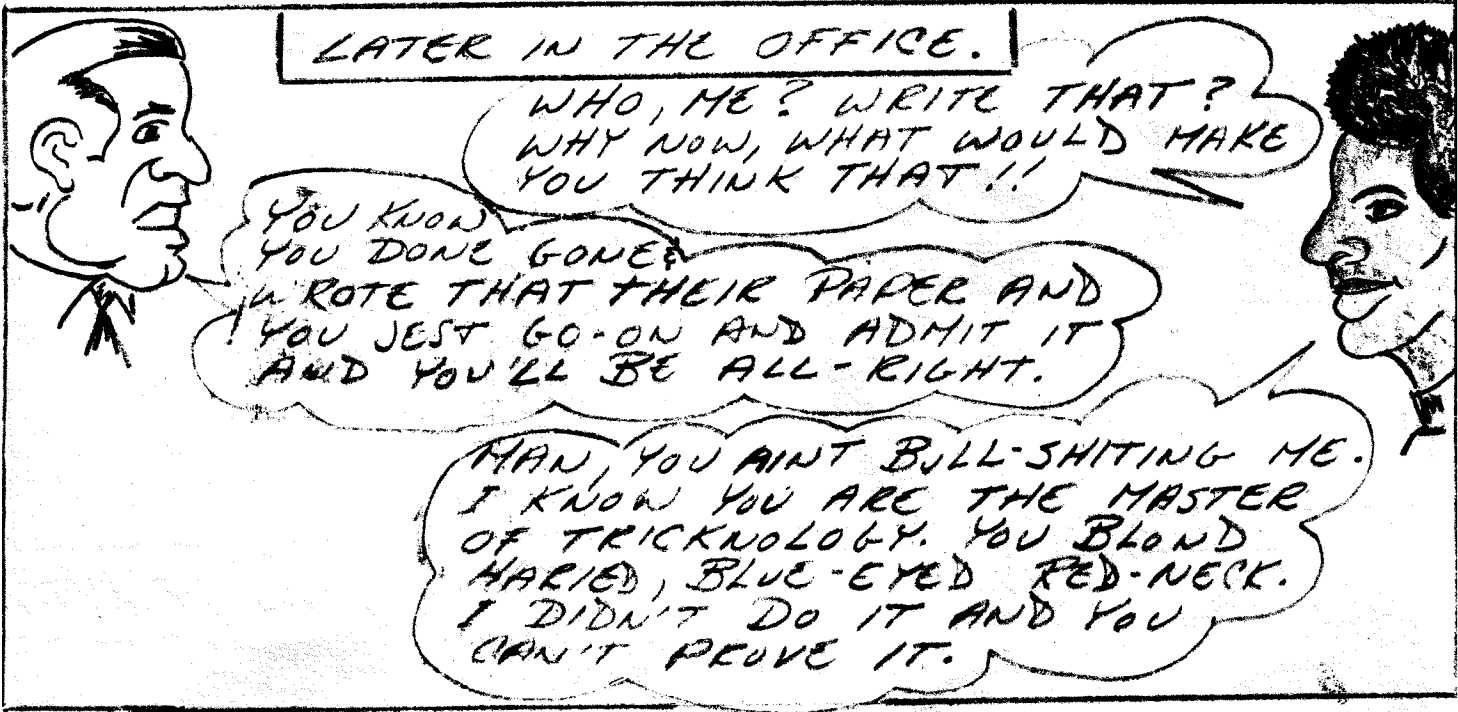 LATER IN THE OFFICE.
WHO, ME? WRITE THAT?
WHY NOW, WHAT WOULD MAKE
YOU THINK THAT!!
YOU KNOW
YOU DONE GONE &
WROTE THAT THEIR PAPER AND
YOU JEST GO-ON AND ADMIT IT
AND YOU'LL BE ALL-RIGHT.
MAN, YOU AINT BULL-SHITING ME.
I KNOW YOU ARE THE MASTER
OF TRICKNOLOGY. YOU BLOND
HARIED, BLUE-EYED RED-NECK.
I DIDN'T DO IT AND YOU
CAN'T PROVE IT.